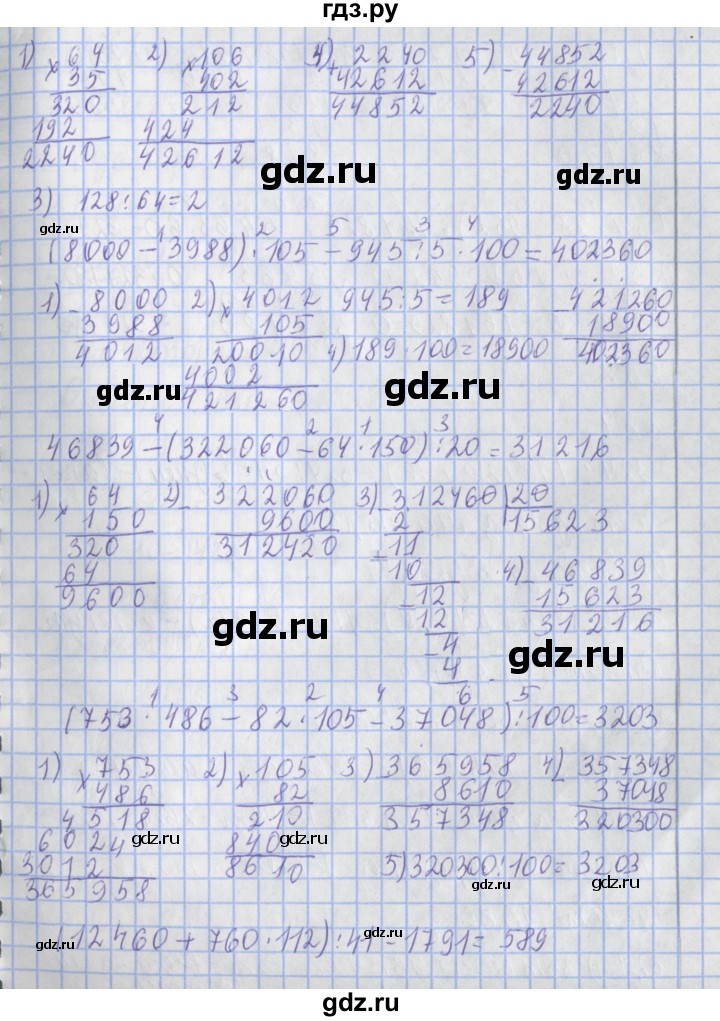 гдз.ру
1) 64 2) 106 4) 2240 5) 44852
× 35 × 402 + 42612 - 42612
320 212 44852 2240
192 424
2240 42612
gdz.ru gdz.ru
3) 128:64=2
gdz.ru
1 2 5 3 4
(8000-3988)·105-945:5·100=402360
1) -8000 2) ×4012 945:5=189 -421260
3988 105 18900
4012 20010 4) 189·100=18900 402360
4002
421260
gdz.ru gdz.ru
4 2 1 3
46839-(322060-64·150):20=31216
1) ×64 2) -322060 3) -312460 20
150 9600 2 15623
320 312420 -11
64 10 4) -46839
9600 -12 15623
12 31216
-4
4
6
gdz.ru gdz.ru
1 3 2 4 5
(753·486-82·105-37048):100=3203
1) ×753 2) ×105 3) 365958 4) -357348
486 82 8610 37048
4518 210 357348 320300
6024 840
3012 8610 5) 320300:100=3203
365958
gdz.ru gdz.ru gdz.ru gdz.ru
(12460+760·112):41-1791=589
gdz.ru gdz.ru gdz.ru
gdz.ru